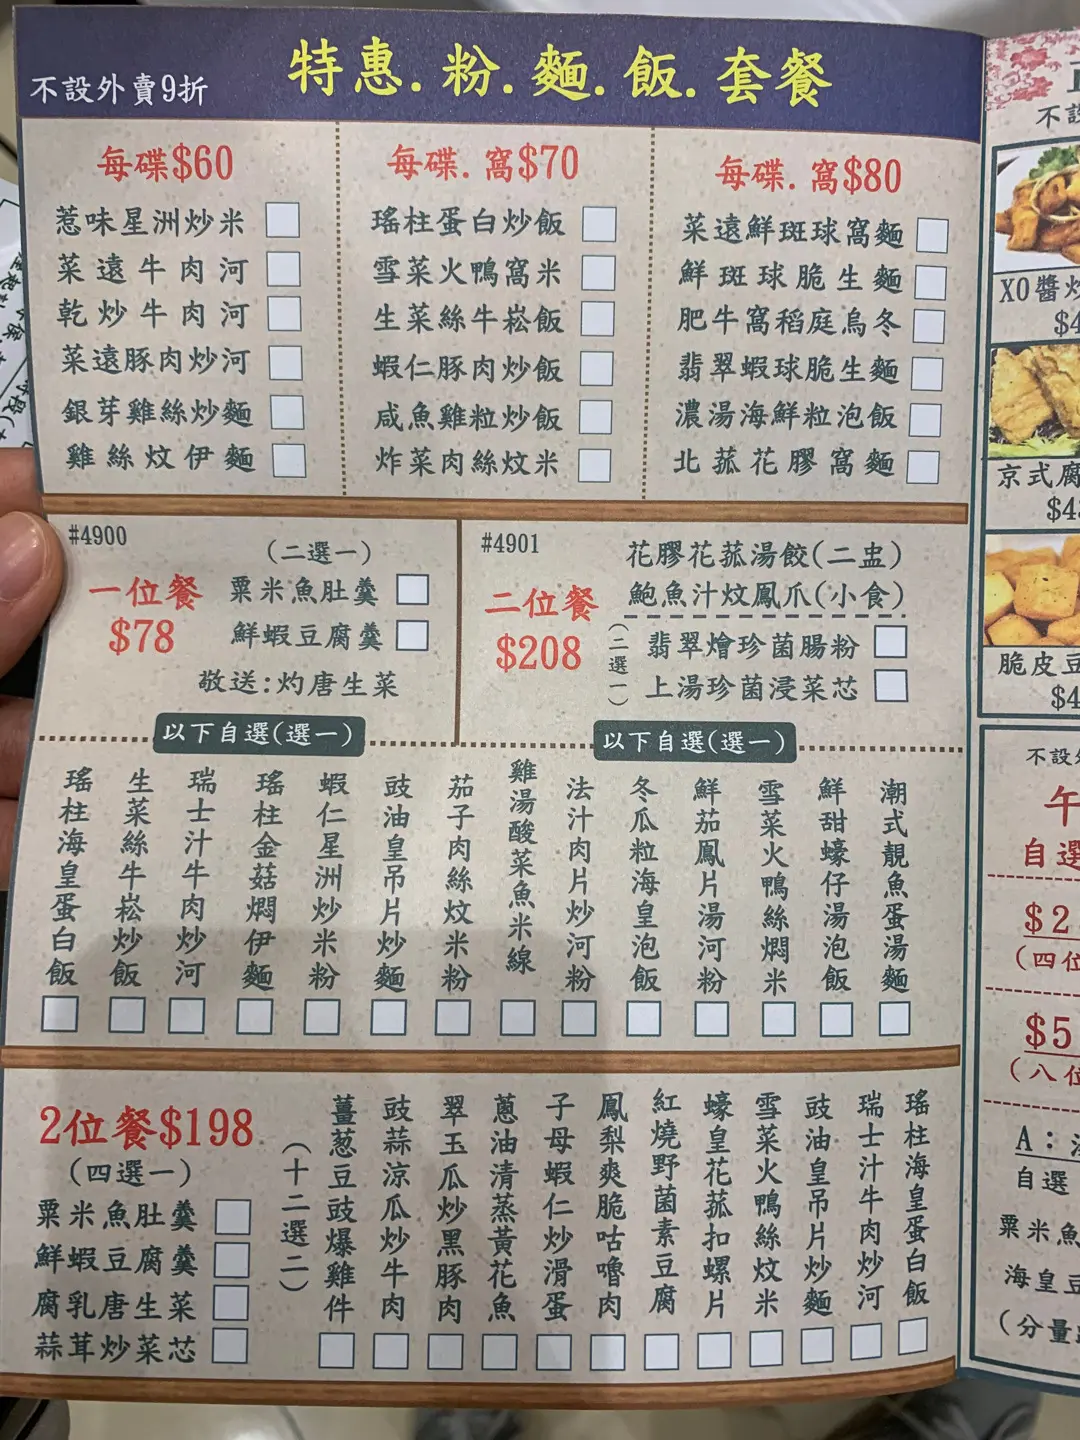 不設外賣9折
特惠.粉.麵.飯.套餐
每碟$60
惹味星洲炒米
菜遠牛肉河
乾炒牛肉河
菜遠豚肉炒河
銀芽雞絲炒麵
雞絲炆伊麵
每碟.窩$70
瑤柱蛋白炒飯
雪菜火鴨窩米
生菜絲牛崧飯
蝦仁豚肉炒飯
咸魚雞粒炒飯
炸菜肉絲炆米
每碟.窩$80
菜遠鮮斑球窩麵
鮮斑球脆生麵
肥牛窩稻庭烏冬
翡翠蝦球脆生麵
濃湯海鮮粒泡飯
北菰花膠窩麵
#4900
一位餐
$78
(二選一)
粟米魚肚羹
鮮蝦豆腐羹
敬送:灼唐生菜
#4901
二位餐
$208
花膠花菰湯餃(二盅)
鮑魚汁炆鳳爪(小食)
(二選一)
翡翠燴珍菌腸粉
上湯珍菌浸菜芯
以下自選(選一)
以下自選(選一)
瑤柱海皇蛋白飯
生菜絲牛崧炒飯
瑞士汁牛肉炒河
瑤柱金菇燜伊麵
蝦仁星洲炒米粉
豉油皇吊片炒麵
茄子肉絲炆米粉
雞湯酸菜魚米線
法汁肉片炒河粉
冬瓜粒海皇泡飯
鮮茄鳳片湯河粉
雪菜火鴨絲燜米
鮮甜蠔仔湯泡飯
潮式靚魚蛋湯麵
2位餐$198
(四選一)
粟米魚肚羹
鮮蝦豆腐羹
腐乳唐生菜
蒜茸炒菜芯
(十二選二)
薑葱豆豉爆雞件
豉蒜涼瓜炒牛肉
翠玉瓜炒黑豚肉
蔥油清蒸黃花魚
子母蝦仁炒滑蛋
鳳梨爽脆咕嚕肉
紅燒野菌素豆腐
蠔皇花菰扣螺片
雪菜火鴨絲炆米
豉油皇吊片炒麵
瑞士汁牛肉炒河
瑤柱海皇蛋白飯
不設
XO醬炒
$4
京式腐
$4
脆皮豆
$4
不設外
午
自選
$2
(四位
$5
(八位
A:
自選
粟米魚
海皇豆
(分量